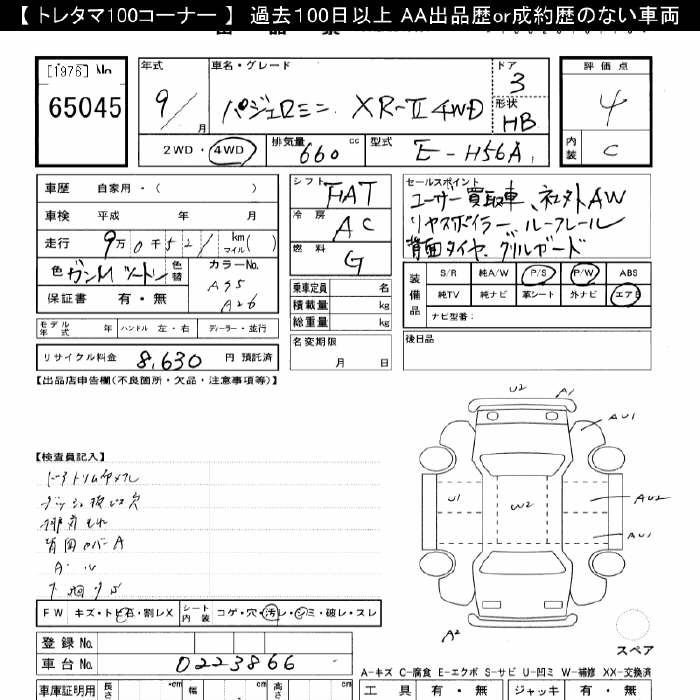 【 トレタマ100コーナー 】 過去100日以上 AA出品歴or成約歴のない車両
[1976] No
65045
年式
9／ 月
車名・グレード
パジェロミニ XR-II 4WD
ドア
3
形状
HB
評価点
4
内装
C
2WD・4WD
排気量
660 cc
型式
E-H56A
車歴 自家用・( )
車検 平成 年 月
走行 9万0千521 km マイル( )
色 ガンMツートン
色替
カラーNo.
A95
A26
保証書 有・無
シフト
FAT
冷房
AC
燃料
G
乗車定員 名
積載量 kg
総重量 kg
セールスポイント
ユーザー買取車、社外AW
リヤスポイラー、ルーフレール
背面タイヤ、グリルガード
装備品
S/R 純A/W P/S P/W ABS
純TV 純ナビ 革シート 外ナビ エアB
ナビ型番:
モデル年式 年 ハンドル 左・右 ディーラー・並行
リサイクル料金 8,630 円 預託済
名変期限
月 日
後日品
【出品店申告欄(不良箇所・欠品・注意事項等)】
U2 A1
AU1
【検査員記入】
U1 W2 AU2
AU1
背面カバーA
F W キズ・トビ石・割レX
シート内装 コゲ・穴・汚レ・シミ・破レ・スレ
A2
スペア
登録 No.
車台 No. 0223866
A-キズ C-腐食 E-エクボ S-サビ U-凹ミ W-補修 XX-交換済
車庫証明用 長さ cm 幅 cm 高さ cm
工具 有・無 ジャッキ 有・無